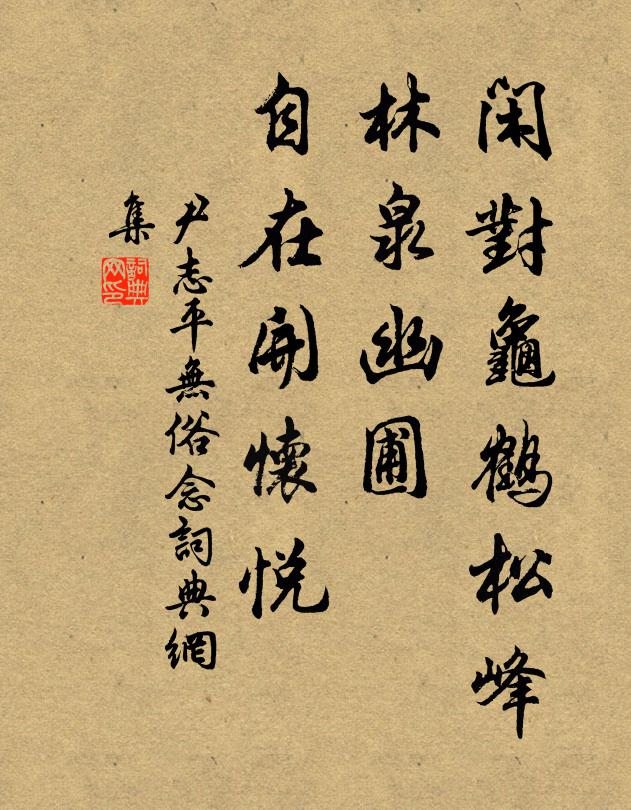 閑對龜鶴松峰
林泉幽圃
自在開懷悅
尹志平無俗念詞典網
集
詞典
网印